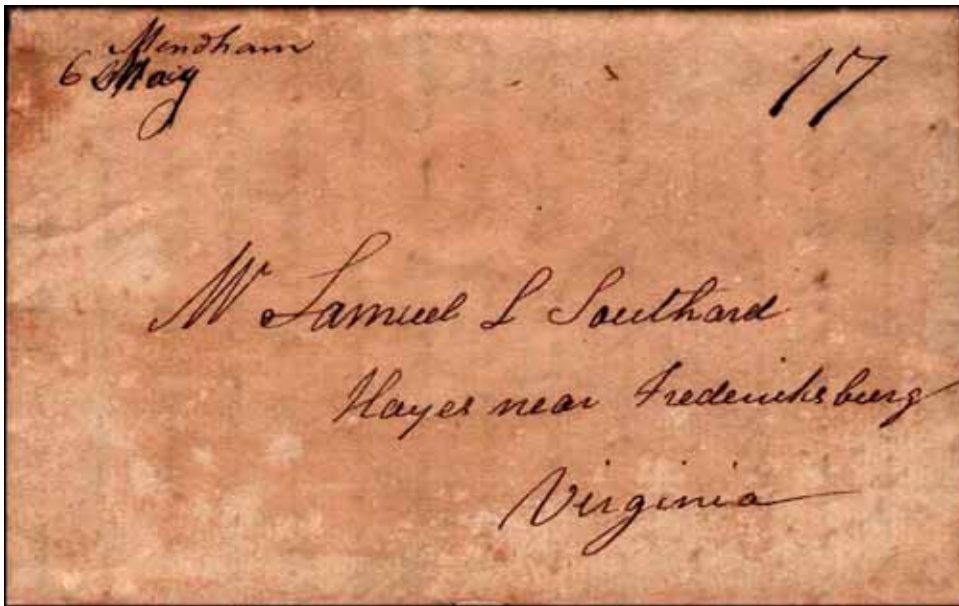 Mendham
6 May
17
Mr Samuel L Southard
Hayes near Fredericksburg
Virginia